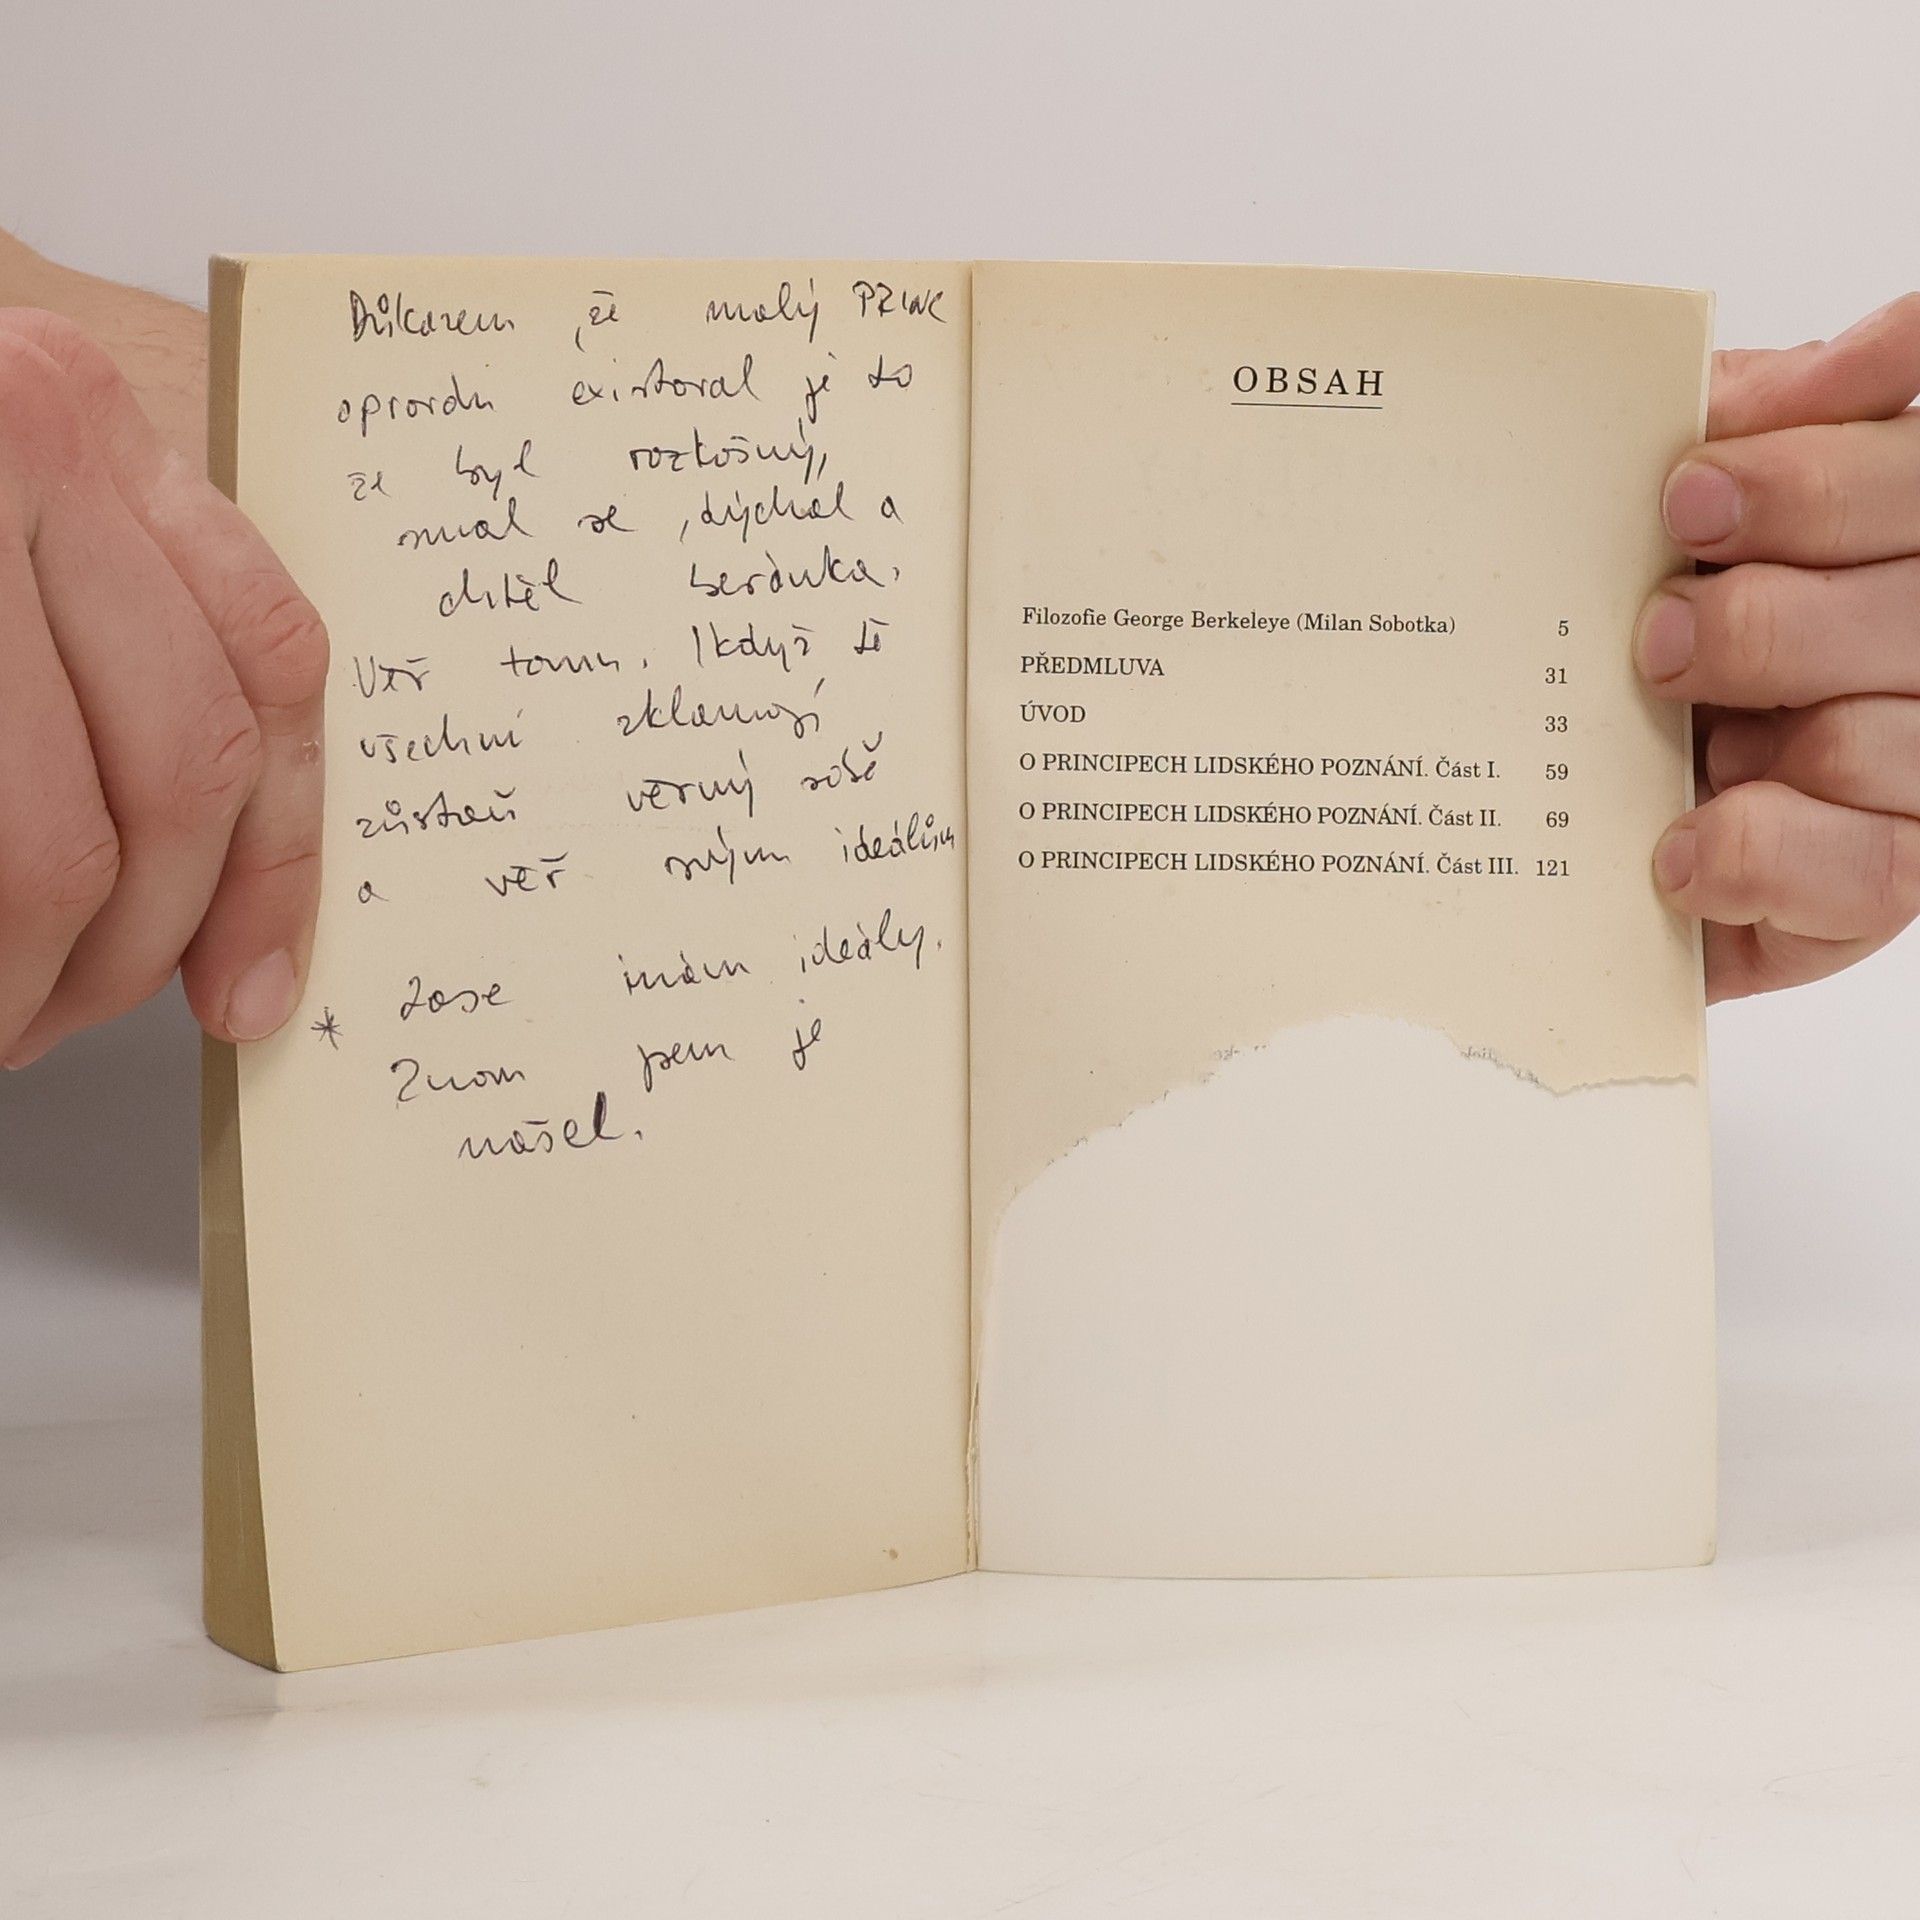 Důkazem, že malý PRINC
opravdu existoval je to
že byl roztošný,
smál se, dýchal a
chtěl beránka.
Věř tomu. I když tě
všichni zklamají
zůstaň věrný sobě
a věř svým ideálům
Zase mám ideály.
* Znovu jsem je
našel.
OBSAH
Filozofie George Berkeleye (Milan Sobotka) 5
PŘEDMLUVA 31
ÚVOD 33
O PRINCIPECH LIDSKÉHO POZNÁNÍ. Část I. 59
O PRINCIPECH LIDSKÉHO POZNÁNÍ. Část II. 69
O PRINCIPECH LIDSKÉHO POZNÁNÍ. Část III. 121